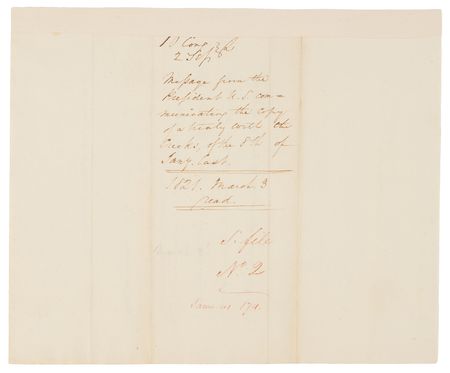 2 Sess
Message from the
President U.S. com-
municating the copy
of a treaty with the
Creeks, of the 8th of
Jany. last.
1821. March 3
read.
S. file
No. 2